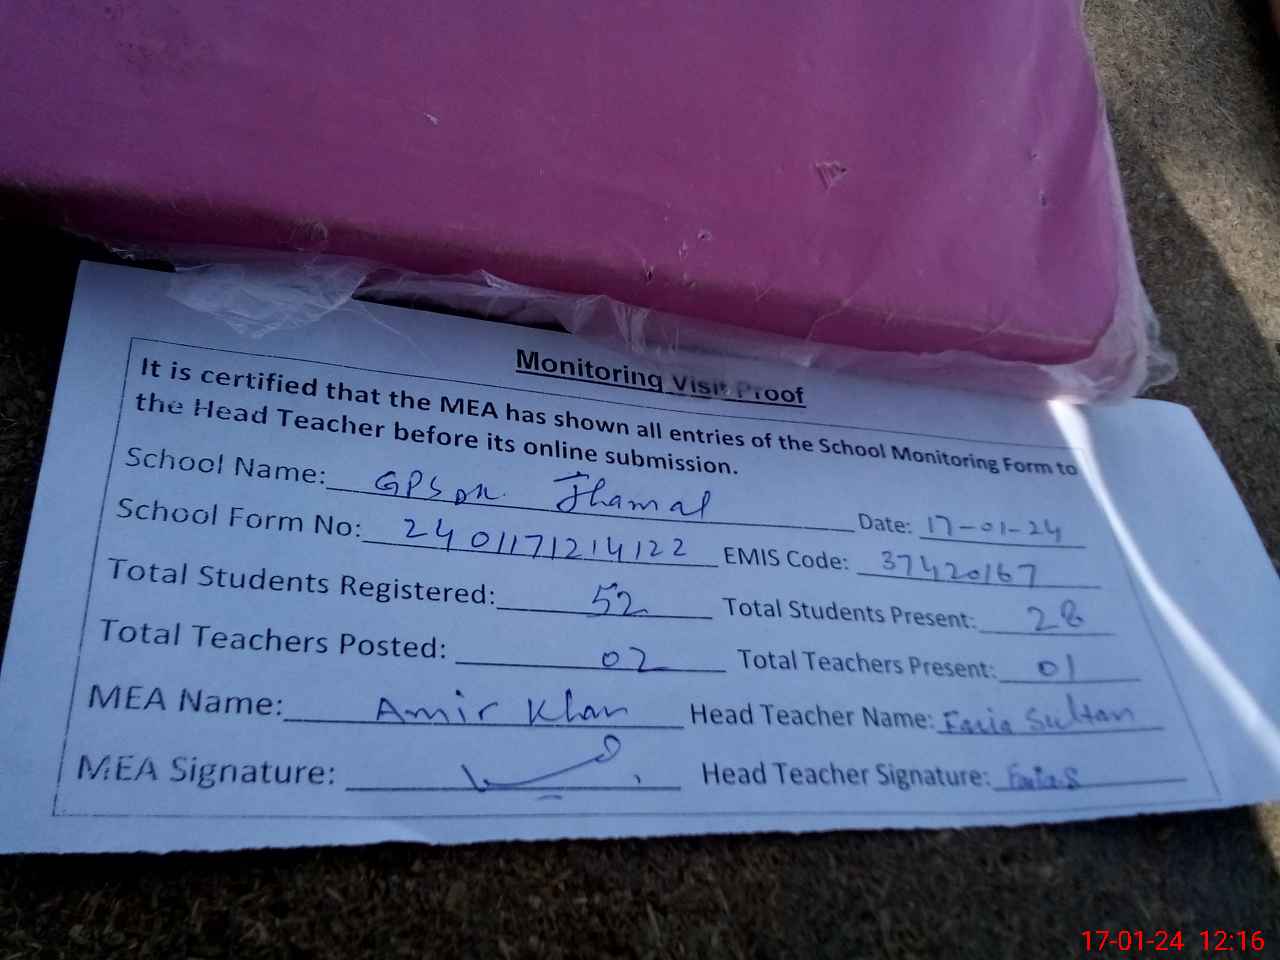 Monitoring Visit Proof
It is certified that the MEA has shown all entries of the School Monitoring Form to
the Head Teacher before its online submission.
School Name: GPS DK Jhamal Date: 17-01-24
School Form No: 2401171214122 EMIS Code: 37420167
Total Students Registered: 52 Total Students Present: 28
Total Teachers Posted: 02 Total Teachers Present: 01
MEA Name: Amir Khan Head Teacher Name: Faria Sultan
MEA Signature: Head Teacher Signature: Faria.S
17-01-24 12:16